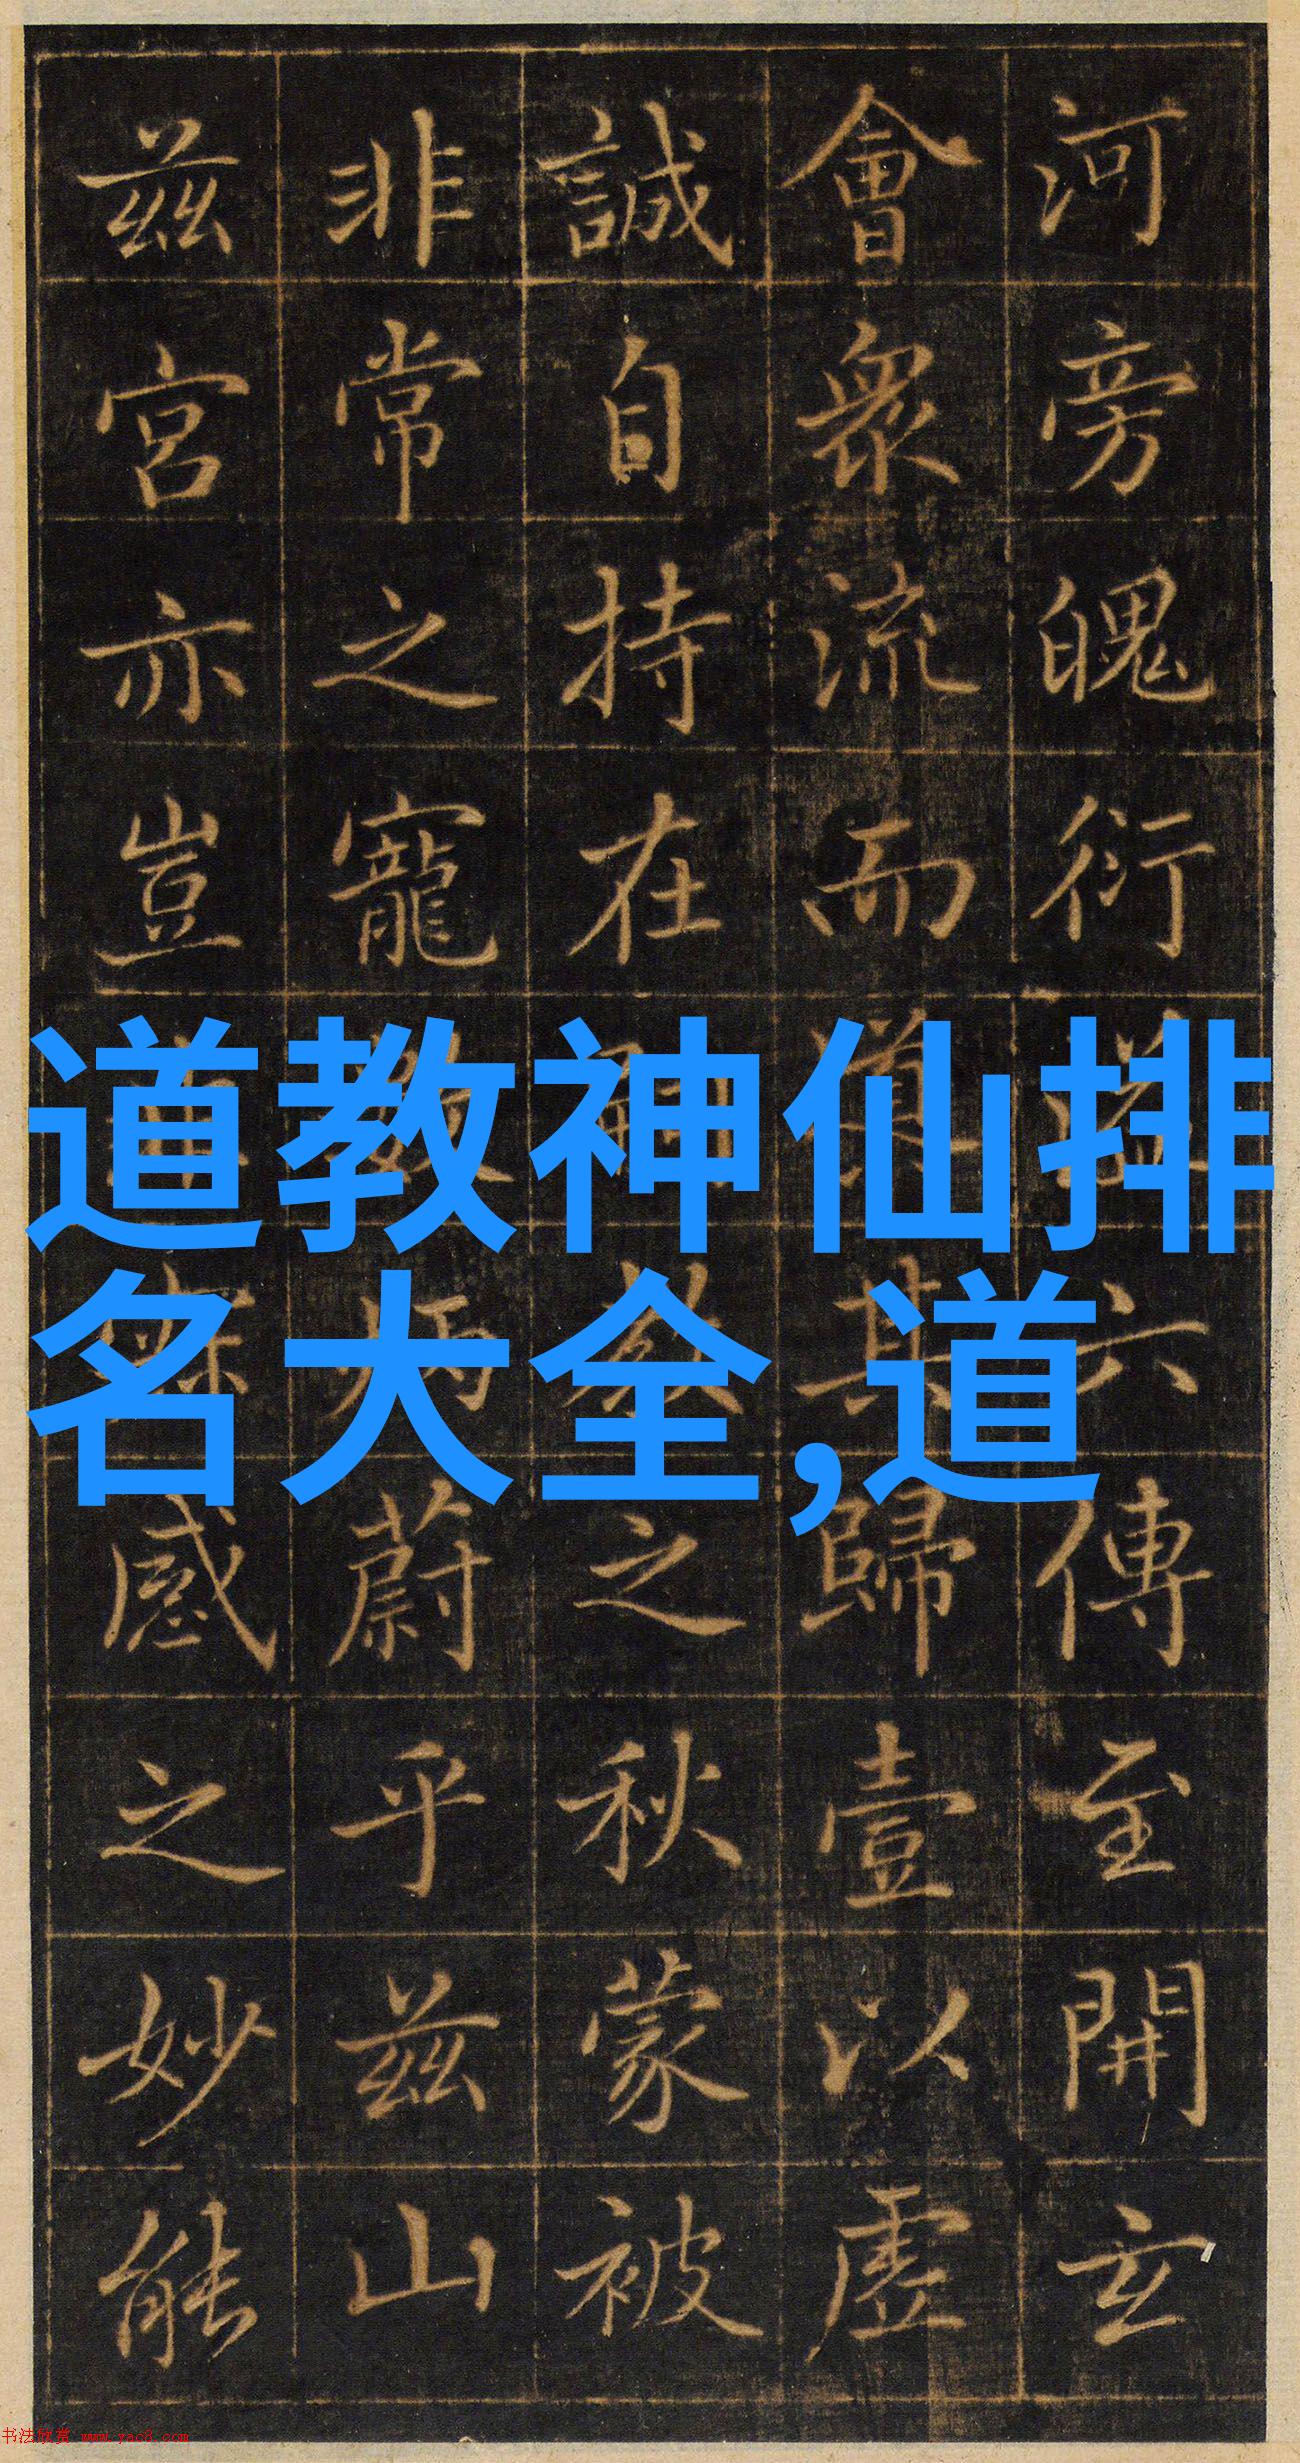 河旁魄衍六傳至開玄
會衆流而其歸壹以虛
誠自持在之秋蒙被
非常之寵數炳蔚乎茲山
茲宮亦豈感之妙能
道教神仙排
名大全,道
书法欣赏 www.yac8.com